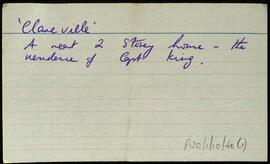 'Clareville'
A neat 2 Storey house – the
residence of Capt King.
PWD/1/10/40(1)